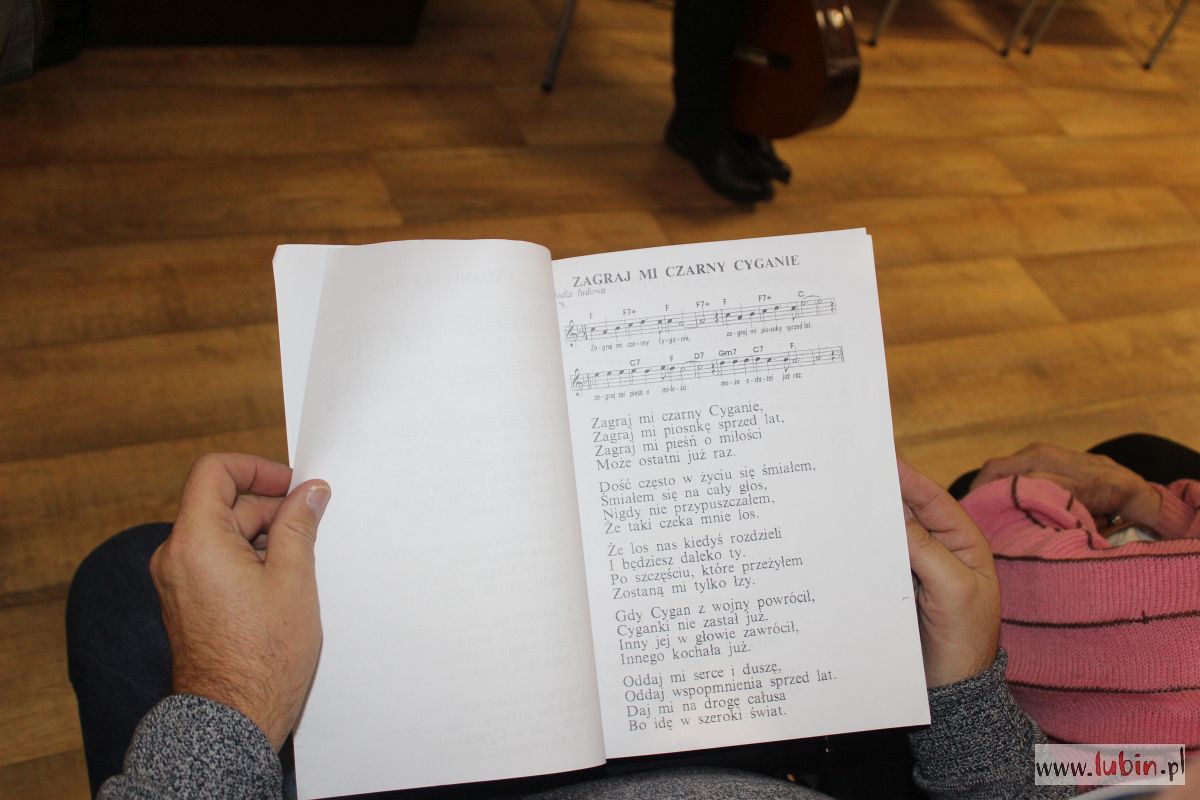 ZAGRAJ MI CZARNY CYGANIE
odia ludowa
F F7+ F F7+ F F7+ C
Za-graj mi czar-ny Cy-ga-nie, za-graj mi pios-nkę sprzed lat,
C7 F D7 Gm7 C7 F
za-graj mi pieśń o mi-ło-ści mo-że o-sta-tni już raz.
Zagraj mi czarny Cyganie,
Zagraj mi piosnkę sprzed lat,
Zagraj mi pieśń o miłości
Może ostatni już raz.
Dość często w życiu się śmiałem,
Śmiałem się na cały głos,
Nigdy nie przypuszczałem,
Że taki czeka mnie los.
Że los nas kiedyś rozdzieli
I będziesz daleko ty.
Po szczęściu, które przeżyłem
Zostaną mi tylko łzy.
Gdy Cygan z wojny powrócił,
Cyganki nie zastał już.
Inny jej w głowie zawrócił,
Innego kochała już.
Oddaj mi serce i duszę,
Oddaj wspopmnienia sprzed lat.
Daj mi na drogę całusa
Bo idę w szeroki świat.
www.lubin.pl